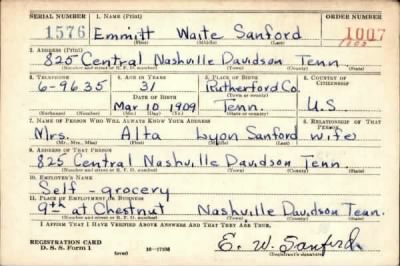 SERIAL NUMBER 1. NAME (Print) ORDER NUMBER
1576 Emmitt Waite Sanford 1007
(First) (Middle) (Last)
2. ADDRESS (Print)
825 Central Nashville Davidson Tenn.
(Number and street or R. F. D. number) (Town) (County) (State)
3. TELEPHONE 4. AGE IN YEARS 5. PLACE OF BIRTH 6. COUNTRY OF CITIZENSHIP
6-9635 31 Rutherford Co.
DATE OF BIRTH (Town or county)
Mar 10 1909 Tenn. U.S.
(Mo.) (Day) (Yr.) (State or country)
7. NAME OF PERSON WHO WILL ALWAYS KNOW YOUR ADDRESS 8. RELATIONSHIP OF THAT PERSON
Mrs. Alta Lyon Sanford wife
(Mr., Mrs., Miss) (First) (Middle) (Last)
9. ADDRESS OF THAT PERSON
825 Central Nashville Davidson Tenn.
(Number and street or R. F. D. number) (Town) (County) (State)
10. EMPLOYER'S NAME
Self - grocery
11. PLACE OF EMPLOYMENT OR BUSINESS
9th at Chestnut Nashville Davidson Tenn.
(Number and street or R. F. D. number) (Town) (County) (State)
I AFFIRM THAT I HAVE VERIFIED ABOVE ANSWERS AND THAT THEY ARE TRUE.
E. W. Sanford
REGISTRATION CARD
D. S. S. Form 1 (Registrant's signature)